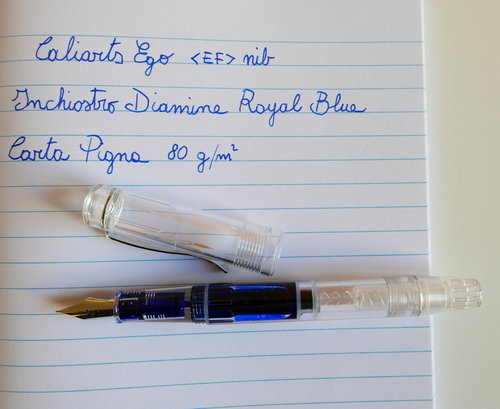 Caliarts Ego <EF> nib
Inchiostro Diamine Royal Blue
Carta Pigna 80 g/m²